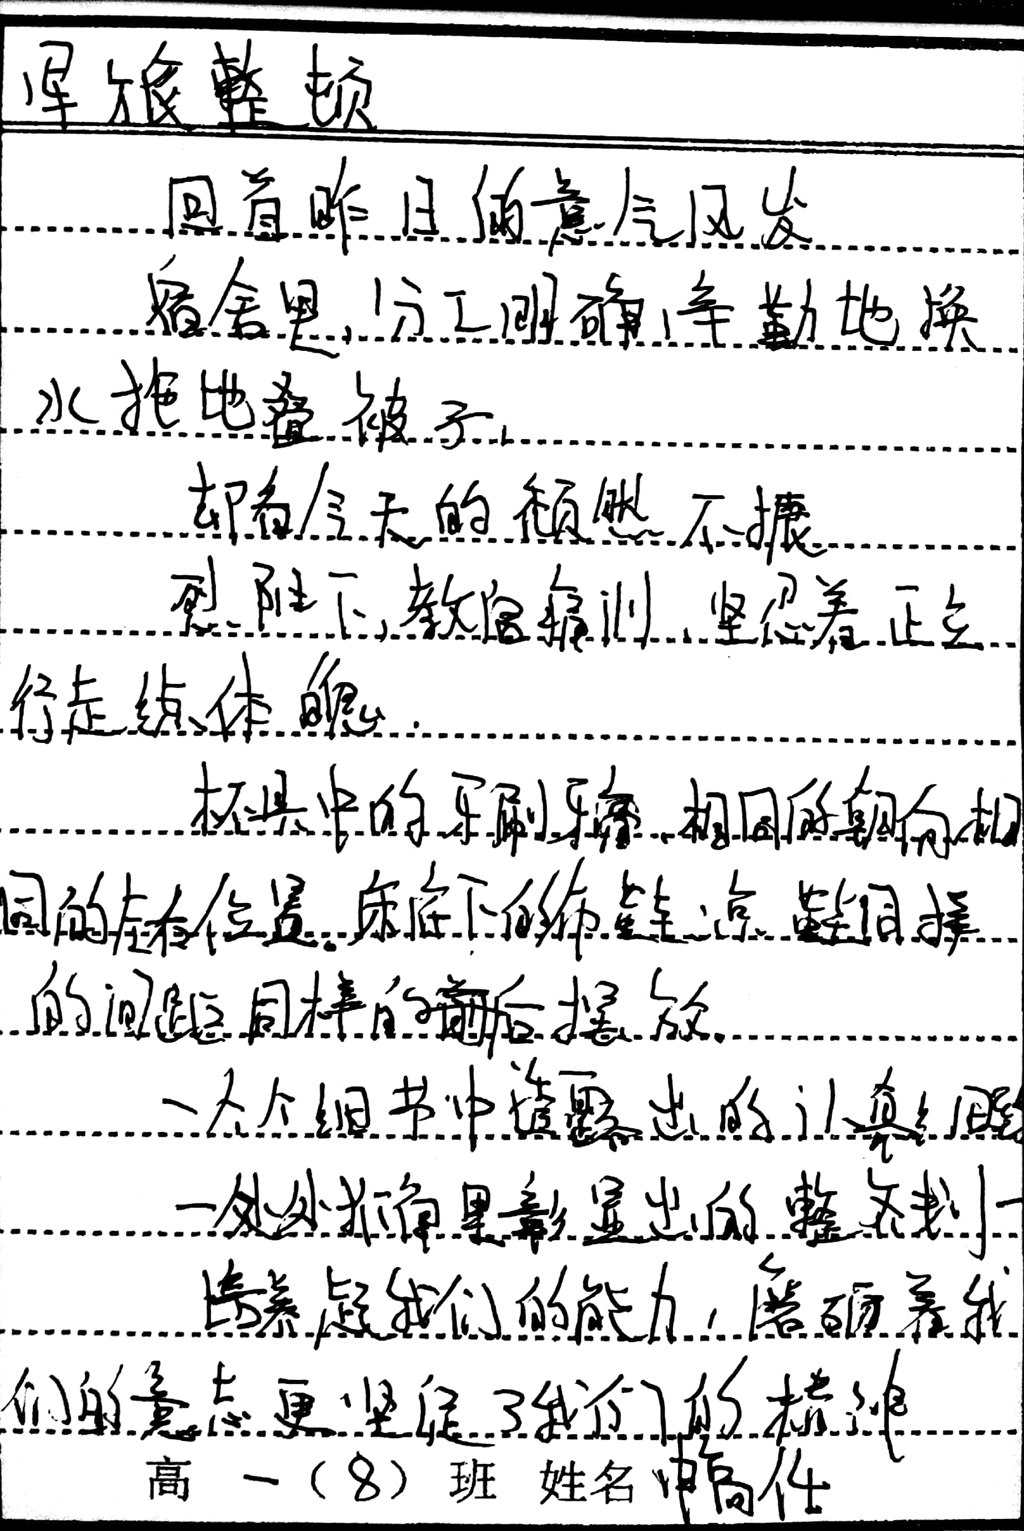 军旅整顿
回首昨日的意气风发
宿舍里,分工明确,辛勤地换
水拖地叠被子,
却看今天的颓然不振
烈阳下,教官痛训,坚忍着正立
行走练体魄.
杯具中的牙刷牙膏,相同的朝向相
同的左右位置。床底下的布鞋凉鞋同样
的间距同样的前后摆放.
一个个细节中透露出的认真细致
一处处拐角里彰显出的整齐划一
培养起我们的能力,磨砺着我
们的意志更坚定了我们的
高一(8)班 姓名